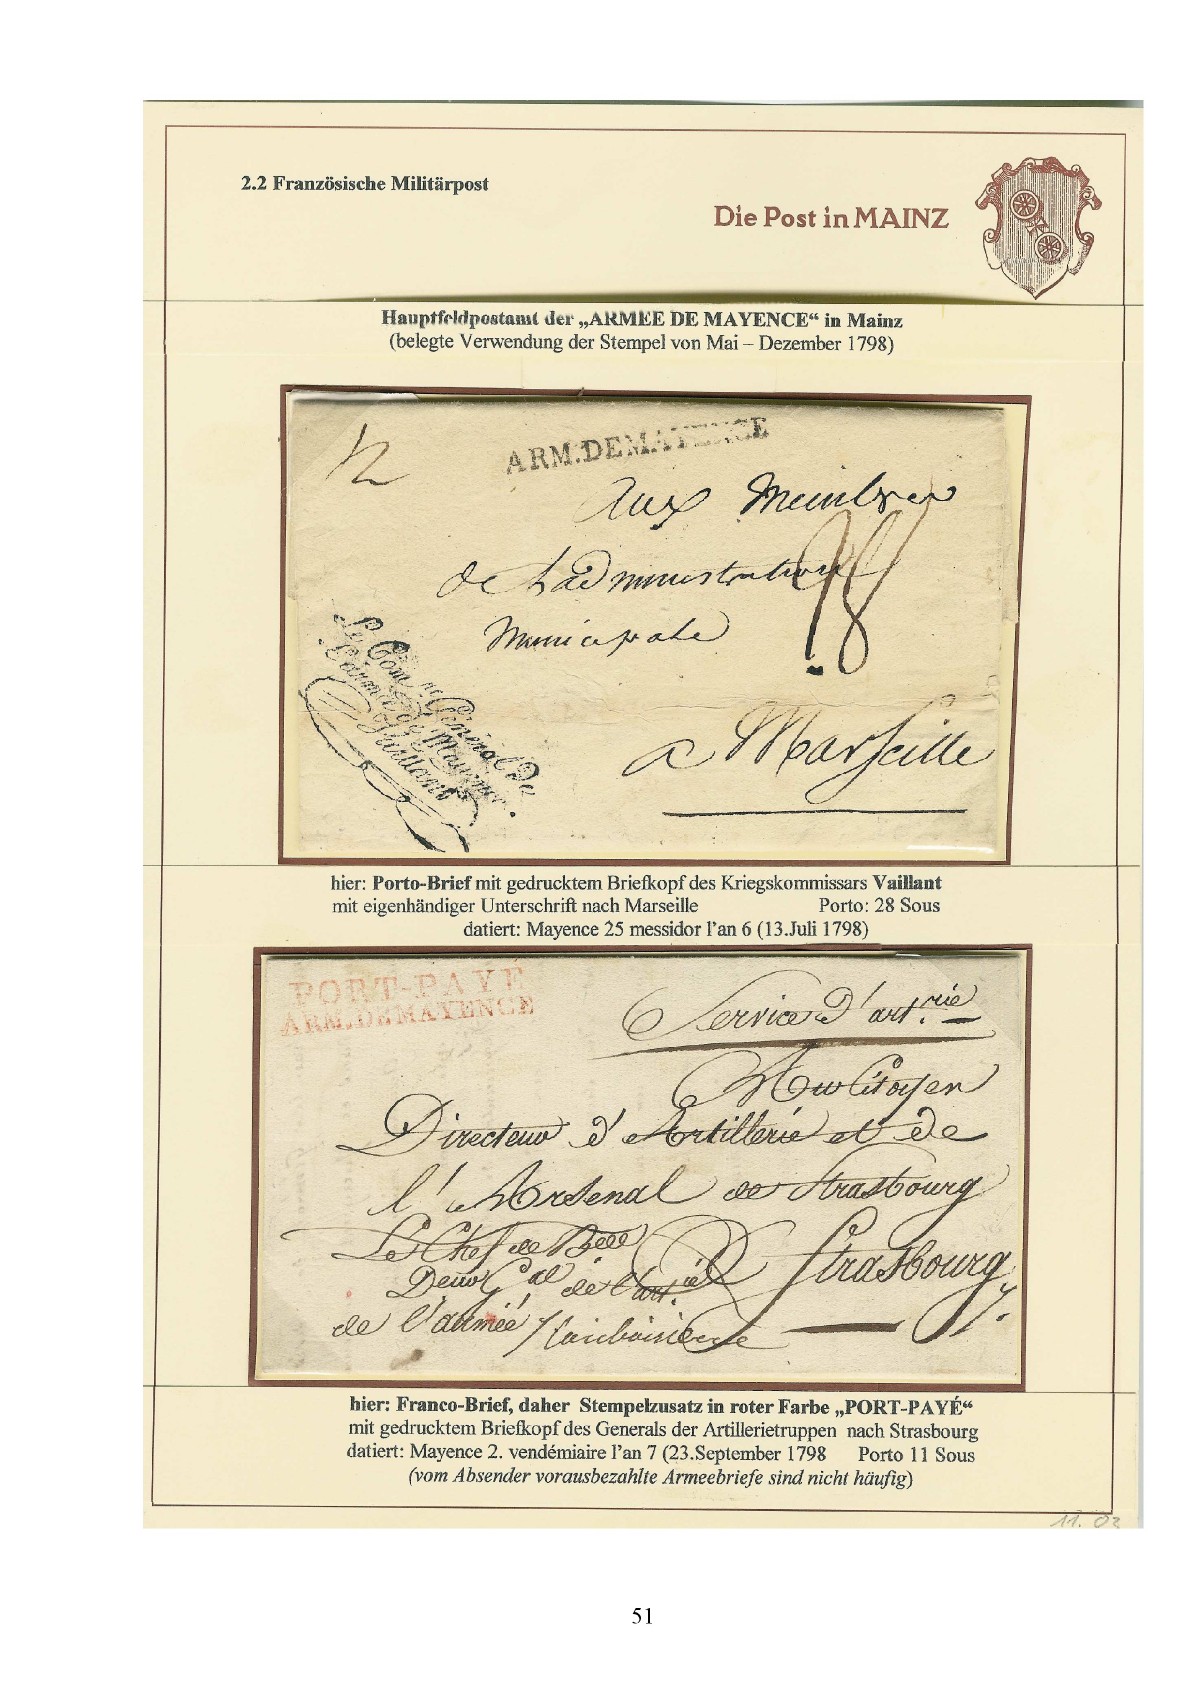 2.2 Französische Militärpost
Die Post in MAINZ
Hauptfeldpostamt der „ARMEE DE MAYENCE“ in Mainz
(belegte Verwendung der Stempel von Mai – Dezember 1798)
ARM.DEMAYENCE
Aux Membres
de L'administration
Municipale
28
Le Com re Général de
L'armée de Mayence.
Vaillant
a Marseille
hier: Porto-Brief mit gedrucktem Briefkopf des Kriegskommissars Vaillant
mit eigenhändiger Unterschrift nach Marseille Porto: 28 Sous
datiert: Mayence 25 messidor l'an 6 (13.Juli 1798)
PORT-PAYÉ
ARM.DEMAYENCE
Service d'art.rie
Au Citoyen
Directeur d'Artillerie et de
l'Arsenal de Strasbourg
Le Chef de
Strasbourg
de l'art.
de l'armée
hier: Franco-Brief, daher Stempelzusatz in roter Farbe „PORT-PAYÉ“
mit gedrucktem Briefkopf des Generals der Artillerietruppen nach Strasbourg
datiert: Mayence 2. vendémiaire l'an 7 (23.September 1798 Porto 11 Sous
(vom Absender vorausbezahlte Armeebriefe sind nicht häufig)
11. 02
51